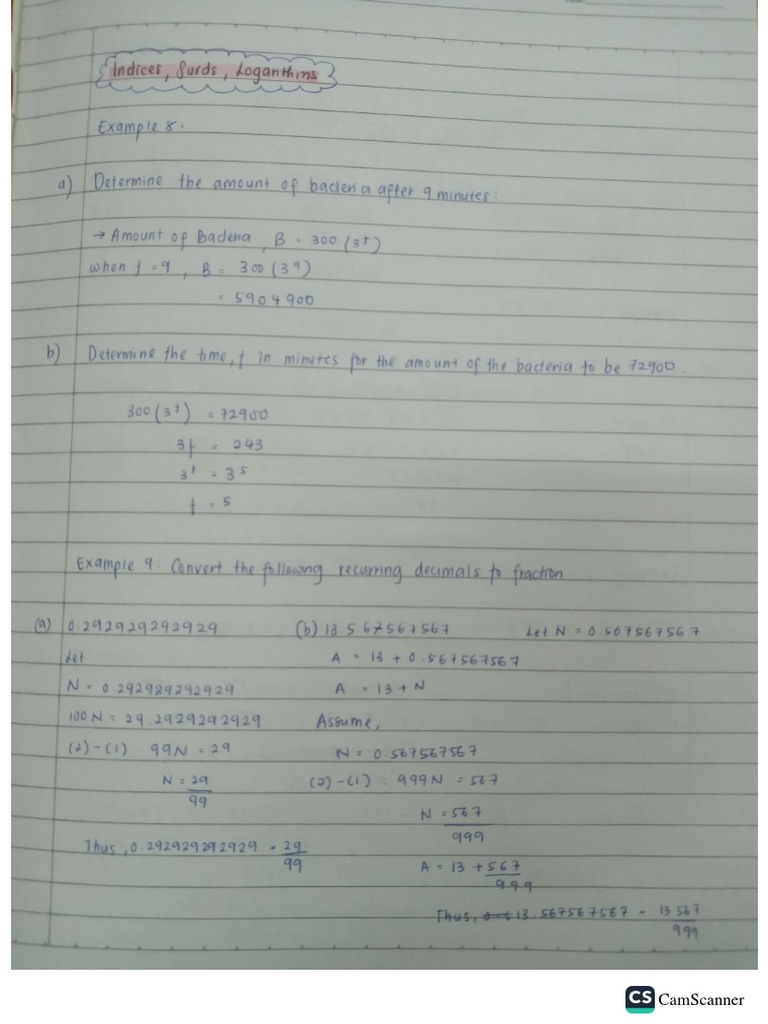 Indices, Surds, Logarithms
Example 8.
a) Determine the amount of bacteria after 9 minutes:
→ Amount of Bacteria, B = 300 (3^t)
when t = 9, B = 300 (3^9)
= 5904900
b) Determine the time, t in minutes for the amount of the bacteria to be 72900.
300 (3^t) = 72900
3t = 243
3^t = 3^5
t = 5
Example 9. Convert the following recurring decimals to fraction
(a) 0.292929292929 (b) 13.567567567 Let N = 0.567567567
Let A = 13 + 0.567567567
N = 0.292929292929 A = 13 + N
100N = 29.2929292929 Assume,
(2)-(1) 99N = 29 N = 0.567567567
N = 29/99 (2)-(1): 999N = 567
N = 567/999
Thus, 0.292929292929 = 29/99 A = 13 + 567/999
Thus, 13.567567567 = 13 567/999
CS CamScanner